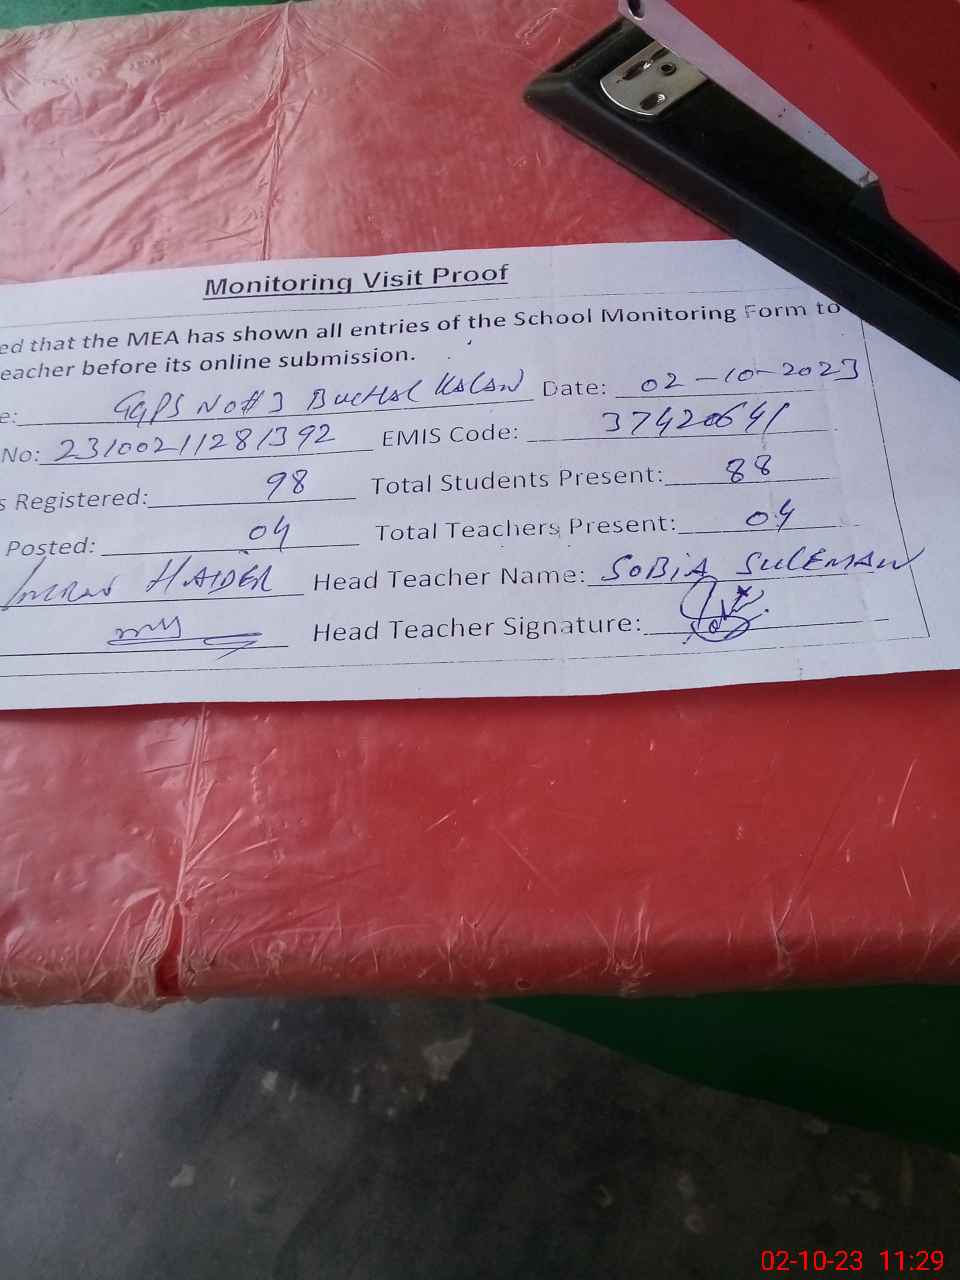 Monitoring Visit Proof
ed that the MEA has shown all entries of the School Monitoring Form to
eacher before its online submission.
e: GGPS No# 3 Buchal Kalan Date: 02-10-2023
No: 23100211281392 EMIS Code: 37420641
s Registered: 98 Total Students Present: 88
Posted: 04 Total Teachers Present: 04
Imran HAIDER Head Teacher Name: SOBIA SULEMAN
Head Teacher Signature:
02-10-23 11:29